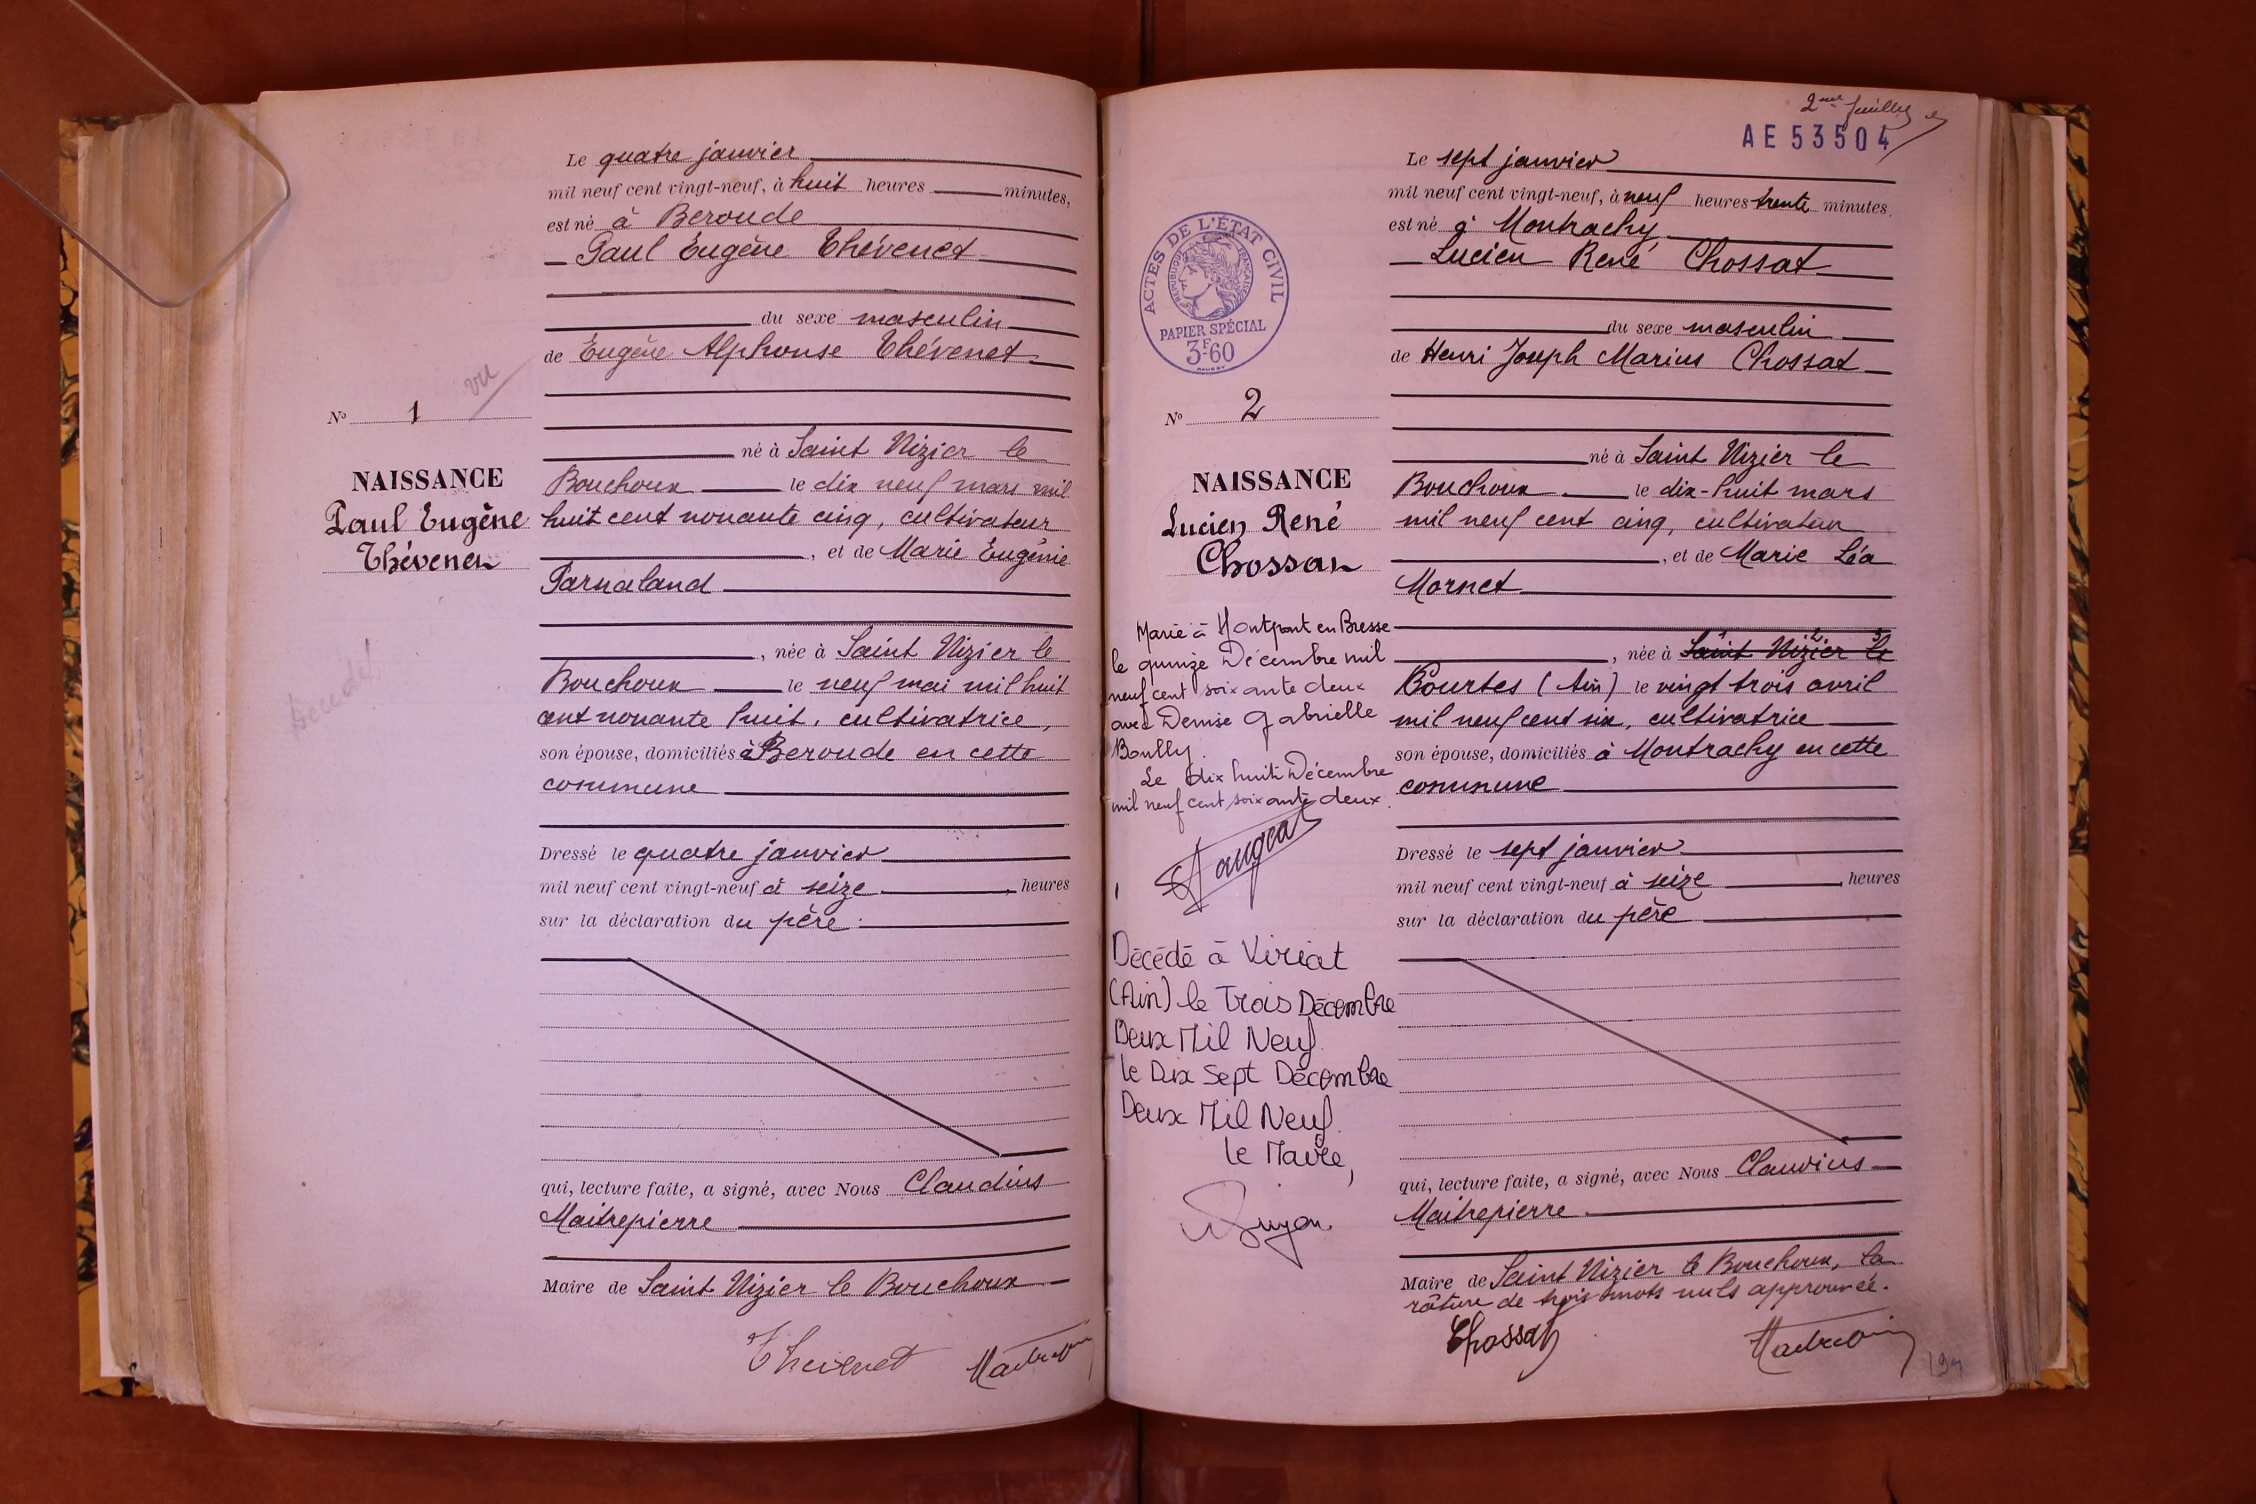 Le quatre janvier
mil neuf cent vingt-neuf, à huit heures minutes,
est né à Beroude
Paul Eugène Thévenet
du sexe masculin
de Eugène Alphonse Thévenet
vu
N° 1
né à Saint Nizier le
NAISSANCE
Bouchoux le dix neuf mars mil
Paul Eugène
huit cent nonante cinq, cultivateur
Thévenet
, et de Marie Eugénie
Parnaland
, née à Saint Nizier le
Bouchoux le neuf mai mil huit
cent nonante huit, cultivatrice,
son épouse, domiciliés à Beroude en cette
commune
Dressé le quatre janvier
mil neuf cent vingt-neuf à seize , heures
sur la déclaration du père
qui, lecture faite, a signé, avec Nous Claudius
Maitrepierre
Maire de Saint Nizier le Bouchoux
Thevenet
2me feuillet
AE 53504
Le sept janvier
mil neuf cent vingt-neuf, à neuf heures trente minutes,
est né à Montrachy
Lucien René Chossat
ACTES DE L'ÉTAT CIVIL
RÉPUBLIQUE FRANÇAISE
PAPIER SPÉCIAL
3F60
du sexe masculin
de Henri Joseph Marius Chossat
N° 2
né à Saint Nizier le
NAISSANCE
Bouchoux le dix-huit mars
Lucien René
mil neuf cent cinq, cultivateur
Chossat
, et de Marie Léa
Mornet
Marié à Montpont en Bresse
le quinze Décembre mil
neuf cent soixante deux
avec Denise Gabrielle
Boully.
Le dix huit Décembre
mil neuf cent soixante deux.
Décédé à Viriat
(Ain) le Trois Décembre
Deux Mil Neuf
le Dix Sept Décembre
Deux Mil Neuf.
le Maire,
, née à Saint Nizier le
Courtes (Ain) le vingt trois avril
mil neuf cent six, cultivatrice
son épouse, domiciliés à Montrachy en cette
commune
Dressé le sept janvier
mil neuf cent vingt-neuf à seize , heures
sur la déclaration du père
qui, lecture faite, a signé, avec Nous Claudius
Maitrepierre
Maire de Saint Nizier le Bouchoux, la
râture de trois mots nuls approuvée.
Chossat